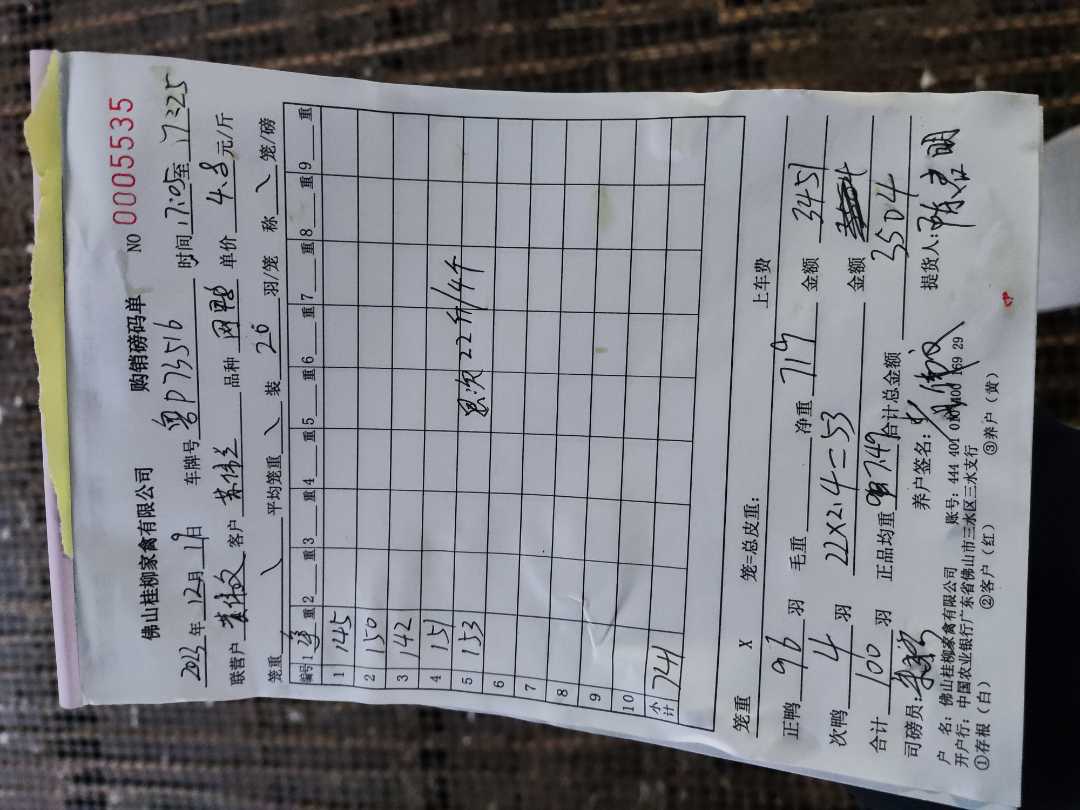 佛山桂柳家禽有限公司 购销磅码单 NO 0005535
2023年12月19日 车牌号 粤P73516 时间 17:05至17:25
联营户 客户 品种 单价 4.8元/斤
笼重 平均笼重 装 26 羽/笼 称 笼/磅
编号 1 重 2 重 3 重 4 重 5 重 6 重 7 重 8 重 9 重
1 145
2 150
3 142
4 151
5 153 次22斤/4只
6
7
8
9
10
小计 741
笼重 X 笼=总皮重: 上车费
正鸭 96 羽 毛重 净重 719 金额 3451
次鸭 4 羽 22X2.4=53 金额
合计 100 羽 正品均重 7.49 合计总金额 3504
司磅员: 养户签名: 提货人:
户 名: 佛山桂柳家禽有限公司 账号: 444 401 010 400 169 29
开户行: 中国农业银行广东省佛山市三水区三水支行
①存根（白） ②客户（红） ③养户（黄）